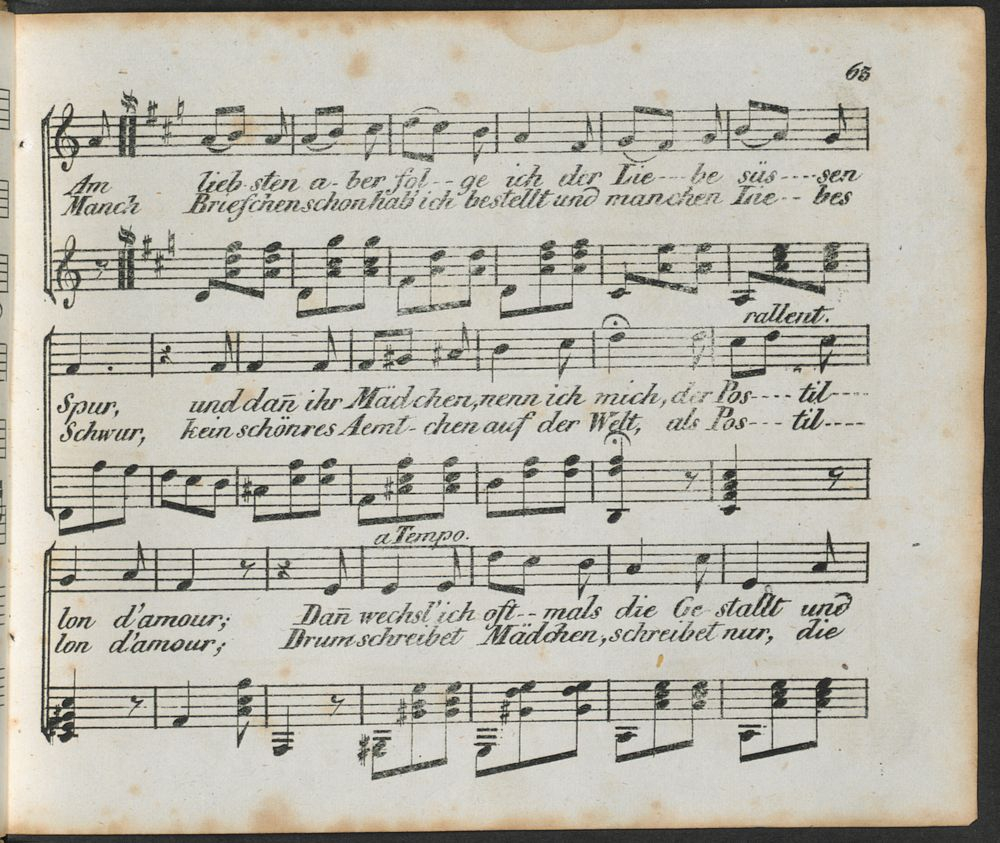 63
Am lieb-sten a-ber fol---ge ich der Lie---be süs----sen
Manch Briefchen schon hab ich bestellt und manchen Lie--bes
rallent.
Spur, und dañ ihr Mädchen, nenn ich mich, der Pos----til----
Schwur, kein schönres Aemt-chen auf der Welt, als Pos---til----
a Tempo.
lon d'amour; Dañ wechsl' ich oft--mals die Ge-stallt und
lon d'amour; Drum schreibet Mädchen, schreibet nur, die